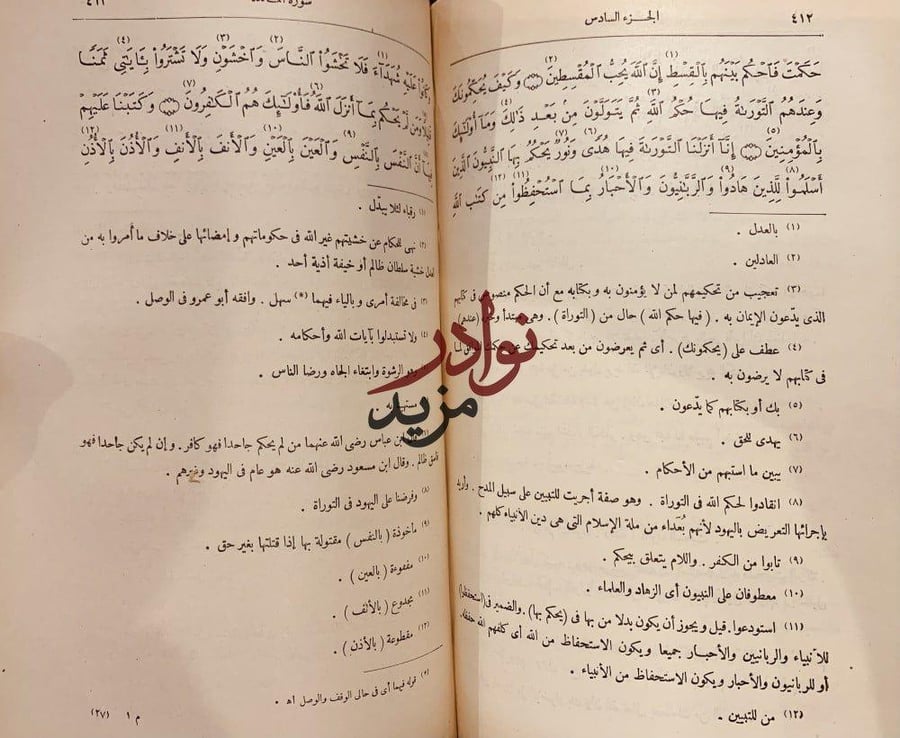 ٤١٢
الجزء السادس
حَكَمْتَ فَاحْكُم بَيْنَهُم بِالْقِسْطِ إِنَّ اللَّهَ يُحِبُّ الْمُقْسِطِينَ وَكَيْفَ يُحَكِّمُونَكَ
وَعِندَهُمُ التَّوْرَىٰةُ فِيهَا حُكْمُ اللَّهِ ثُمَّ يَتَوَلَّوْنَ مِنْ بَعْدِ ذَٰلِكَ وَمَا أُوْلَٰئِكَ
بِالْمُؤْمِنِينَ إِنَّا أَنزَلْنَا التَّوْرَىٰةَ فِيهَا هُدًى وَنُورٌ يَحْكُمُ بِهَا النَّبِيُّونَ الَّذِينَ
أَسْلَمُوا لِلَّذِينَ هَادُوا وَالرَّبَّٰنِيُّونَ وَالْأَحْبَارُ بِمَا اسْتُحْفِظُوا مِن كِتَٰبِ اللَّهِ
(١) بالعدل .
(٢) العادلين .
(٣) تعجيب من تحكيمهم لمن لا يؤمنون به وبكتابه مع أن الحكم منصوص فى كتابهم
الذى يدّعون الإيمان به . (فيها حكم الله) حال من (التوراة) . وهى مبتدأ وخبره (عندهم).
(٤) عطف على (يحكمونك) . أى ثم يعرضون من بعد تحكيمك عن حكمك الموافق لما
فى كتابهم لا يرضون به .
(٥) بك أو بكتابهم كما يدّعون .
(٦) يهدى للحق .
(٧) يبين ما استبهم من الأحكام .
(٨) انقادوا لحكم الله فى التوراة . وهو صفة أجريت للنبيين على سبيل المدح . وأريد
بإجرائها التعريض باليهود لأنهم بُعداء من ملة الإسلام التى هى دين الأنبياء كلهم .
(٩) تابوا من الكفر . واللام يتعلق بيحكم .
(١٠) معطوفان على النبيون أى الزهاد والعلماء .
(١١) استودعوا . قيل ويجوز أن يكون بدلا من بها فى (يحكم بها) . والضمير فى (استحفظوا)
للأنبياء والربانيين والأحبار جميعا ويكون الاستحفاظ من الله أى كلفهم الله حفظه.
أو للربانيون والأحبار ويكون الاستحفاظ من الأنبياء .
(١٢) من للتبيين .
٤١٣
سورة المائدة
وَكَانُوا عَلَيْهِ شُهَدَاءَ فَلَا تَخْشَوُا النَّاسَ وَاخْشَوْنِ وَلَا تَشْتَرُوا بِـَٔايَٰتِى ثَمَنًا
قَلِيلًا وَمَن لَّمْ يَحْكُم بِمَا أَنزَلَ اللَّهُ فَأُوْلَٰئِكَ هُمُ الْكَٰفِرُونَ وَكَتَبْنَا عَلَيْهِمْ
فِيهَا أَنَّ النَّفْسَ بِالنَّفْسِ وَالْعَيْنَ بِالْعَيْنِ وَالْأَنفَ بِالْأَنفِ وَالْأُذُنَ بِالْأُذُنِ
(١) رقباء لئلا يبدّل .
(٢) نهى للحكام عن خشيتهم غير الله فى حكوماتهم وإمضائها على خلاف ما أمروا به من
العدل خشية سلطان ظالم أو خيفة أذية أحد .
(٣) فى مخالفة أمرى وبالياء فيهما (*) سهل . وافقه أبو عمرو فى الوصل .
(٤) ولا تستبدلوا بآيات الله وأحكامه .
وهو الرشوة وابتغاء الجاه ورضا الناس .
مستهينا به
ابن عباس رضى الله عنهما من لم يحكم جاحدا فهو كافر . وإن لم يكن جاحدا فهو
فاسق ظالم . وقال ابن مسعود رضى الله عنه هو عام فى اليهود وغيرهم .
(٨) وفرضنا على اليهود فى التوراة .
(٩) مأخوذة (بالنفس) مقتولة بها إذا قتلتها بغير حق .
(١٠) مفقوءة (بالعين) .
(١١) مجدوع (بالألف) .
(١٢) مقطوعة (بالأذن) .
(*) قوله فيهما أى فى حالى الوقف والوصل اه .
م ١ (٢٧)
نوادر
مزيد